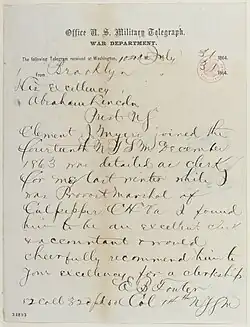 Office U. S. Military Telegraph,
WAR DEPARTMENT.
The following Telegram received at Washington, July 1864.
From Brooklyn 1864.
His Excellency
Abraham Lincoln
Prest US
Clement J Myers joined the
fourteenth NYSM December
1863 was detailed as clerk
for me last winter while I
was Provost Marshal of
Culpepper CH Va I found
him to be an excellent clerk
& accountant & would
cheerfully recommend him to
your excellency for a clerkship
E B Fowler
Col 14th NYSM